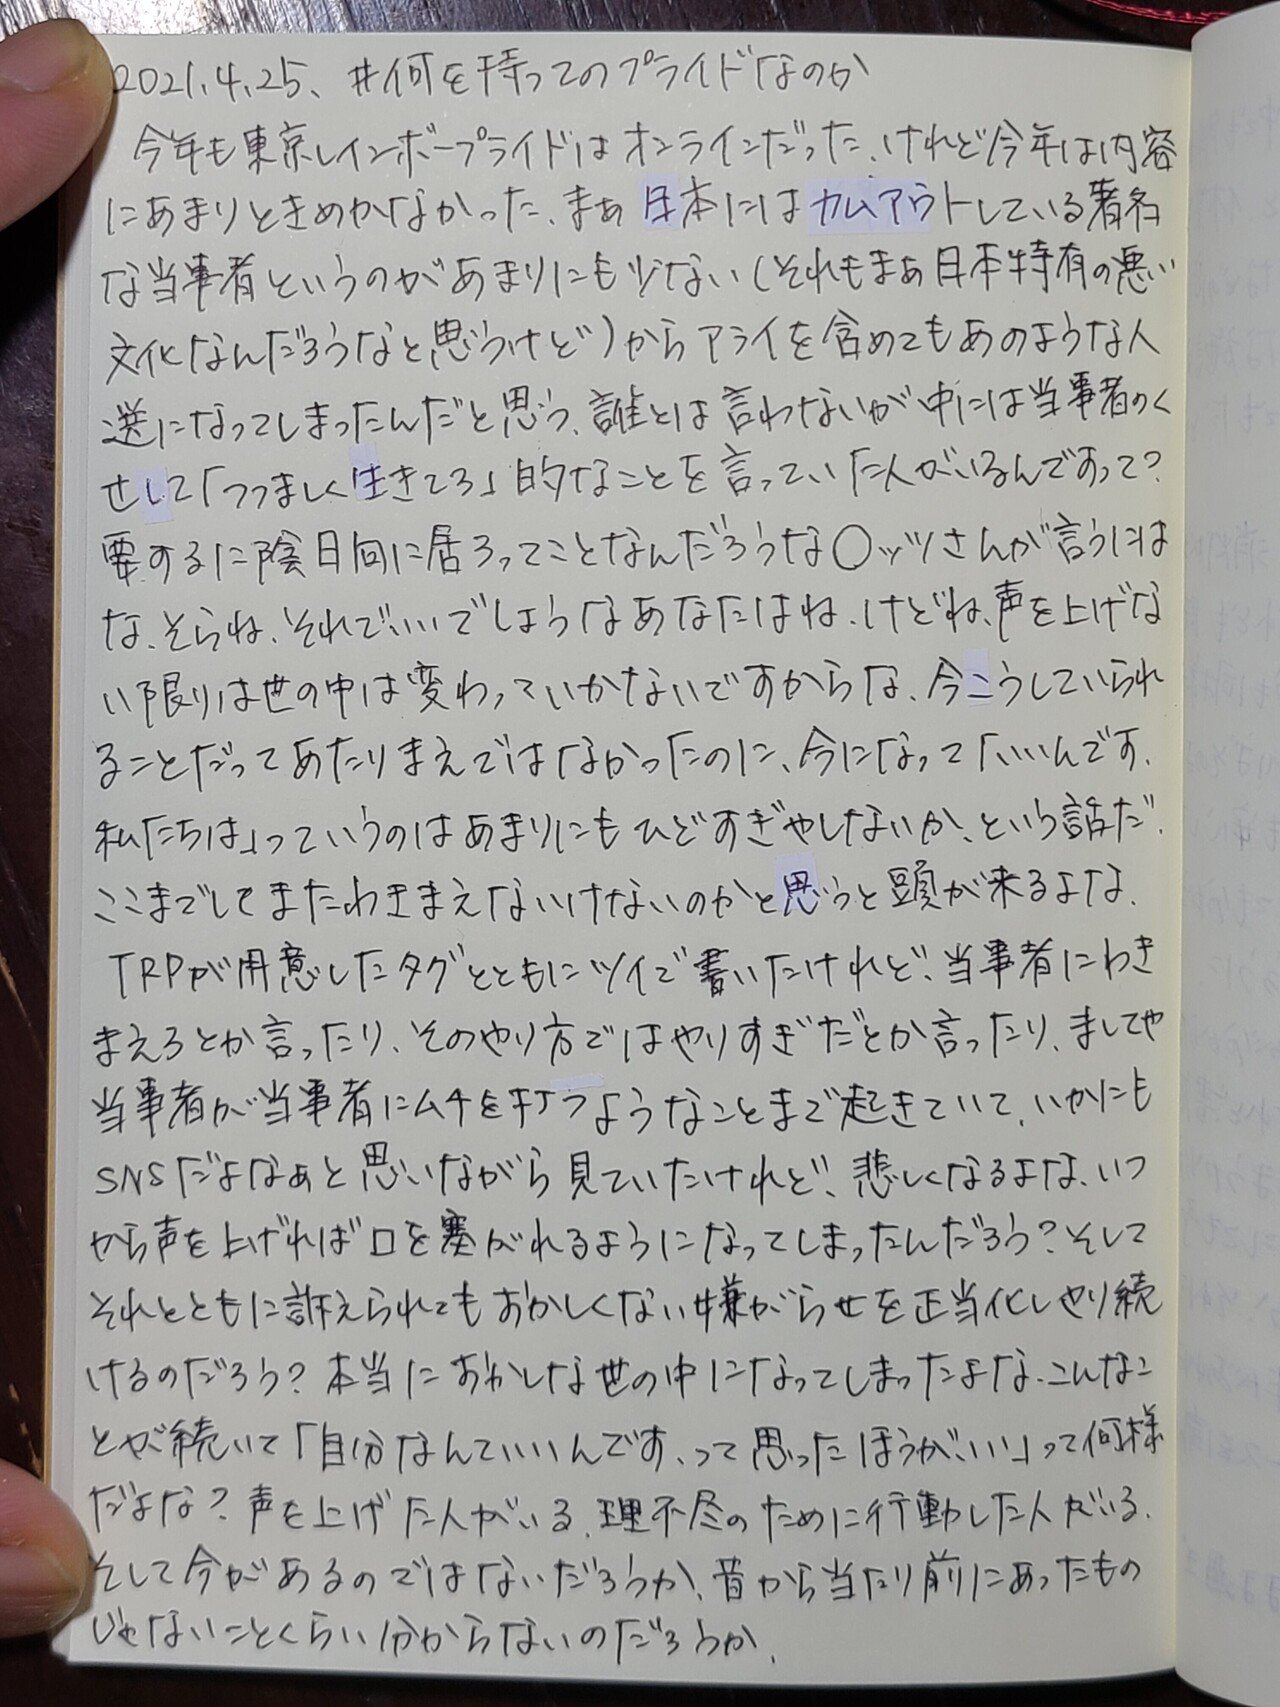 2021.4.25、#何を持ってのプライドなのか
今年も東京レインボープライドはオンラインだった、けれど今年は内容
にあまりときめかなかった、まぁ日本にはカムアウトしている著名
な当事者というのがあまりにも少ない(それもまぁ日本特有の悪い
文化なんだろうなと思うけど)からアライを含めてもあのような人
選になってしまったんだと思う、誰とは言わないが中には当事者のく
せして「つつましく生きてろ」的なことを言っていた人がいるんですって?
要するに陰日向に居ろってことなんだろうな〇ッツさんが言うには
な、そらね、それでいいでしょうなあなたはね、けどね、声を上げな
い限りは世の中は変わっていかないですからな、今こうしていられ
ることだってあたりまえではなかったのに、今になって「いいんです、
私たちは」っていうのはあまりにもひどすぎやしないか、という話だ、
ここまでしてまたわきまえないけないのかと思うと頭が来るよな、
TRPが用意したタグとともにツイで書いたけれど、当事者にわき
まえろとか言ったり、そのやり方ではやりすぎだとか言ったり、ましてや
当事者が当事者にムチを打つようなことまで起きていて、いかにも
SNSだよなぁと思いながら見ていたけれど、悲しくなるよな、いつ
から声を上げれば口を塞がれるようになってしまったんだろう?そして
それとともに訴えられてもおかしくない嫌がらせを正当化しやり続
けるのだろう?本当におかしな世の中になってしまったよな、こんなこ
とが続いて「自分なんていいんです、って思ったほうがいい」って何様
だよな?声を上げた人がいる、理不尽のために行動した人がいる、
そして今があるのではないだろうか、昔から当たり前にあったもの
じゃないことくらい分からないのだろうか、